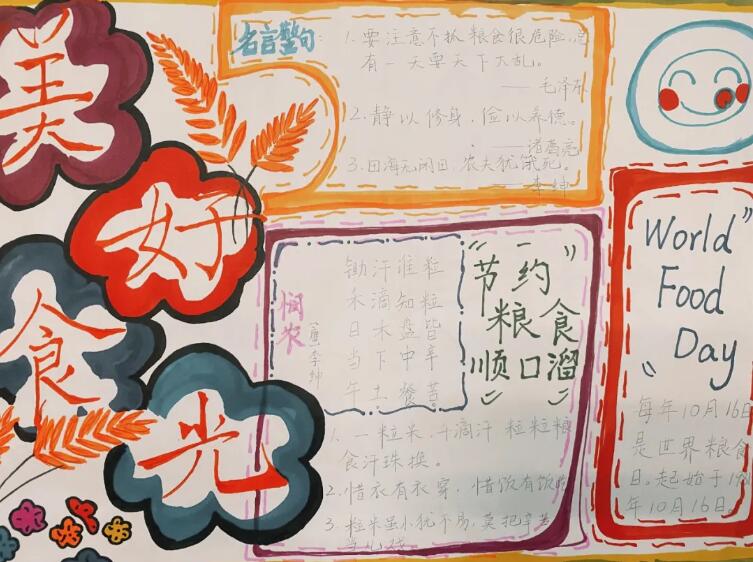 美
好
食
光
名言警句:
1.要注意不抓粮食很危险,总
有一天要天下大乱。
——毛泽东
2.静以修身,俭以养德。
——诸葛亮
3.四海无闲田,农夫犹饿死。
——李绅
悯农
(唐)李绅
锄禾日当午
汗滴禾下土
谁知盘中餐
粒粒皆辛苦
“节约
粮食
顺口溜”
1.一粒米,千滴汗 粒粒粮
食汗珠换。
2.惜衣有衣穿,惜饭有饭吃
3.粒米虽小犹不易,莫把辛苦
当儿戏
“World
Food
Day”
每年10月16日
是世界粮食
日。起始于
年10月16日。